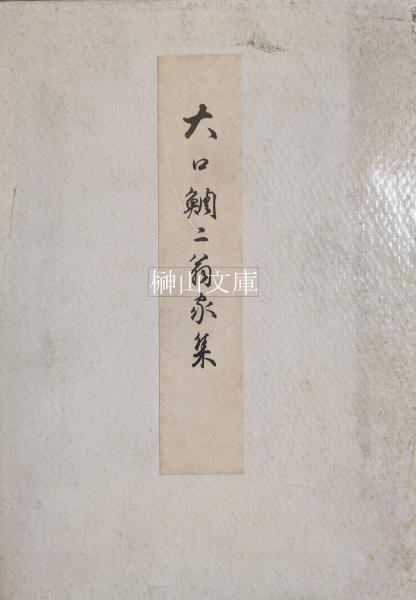 大口鯛二翁家集
榊山文庫